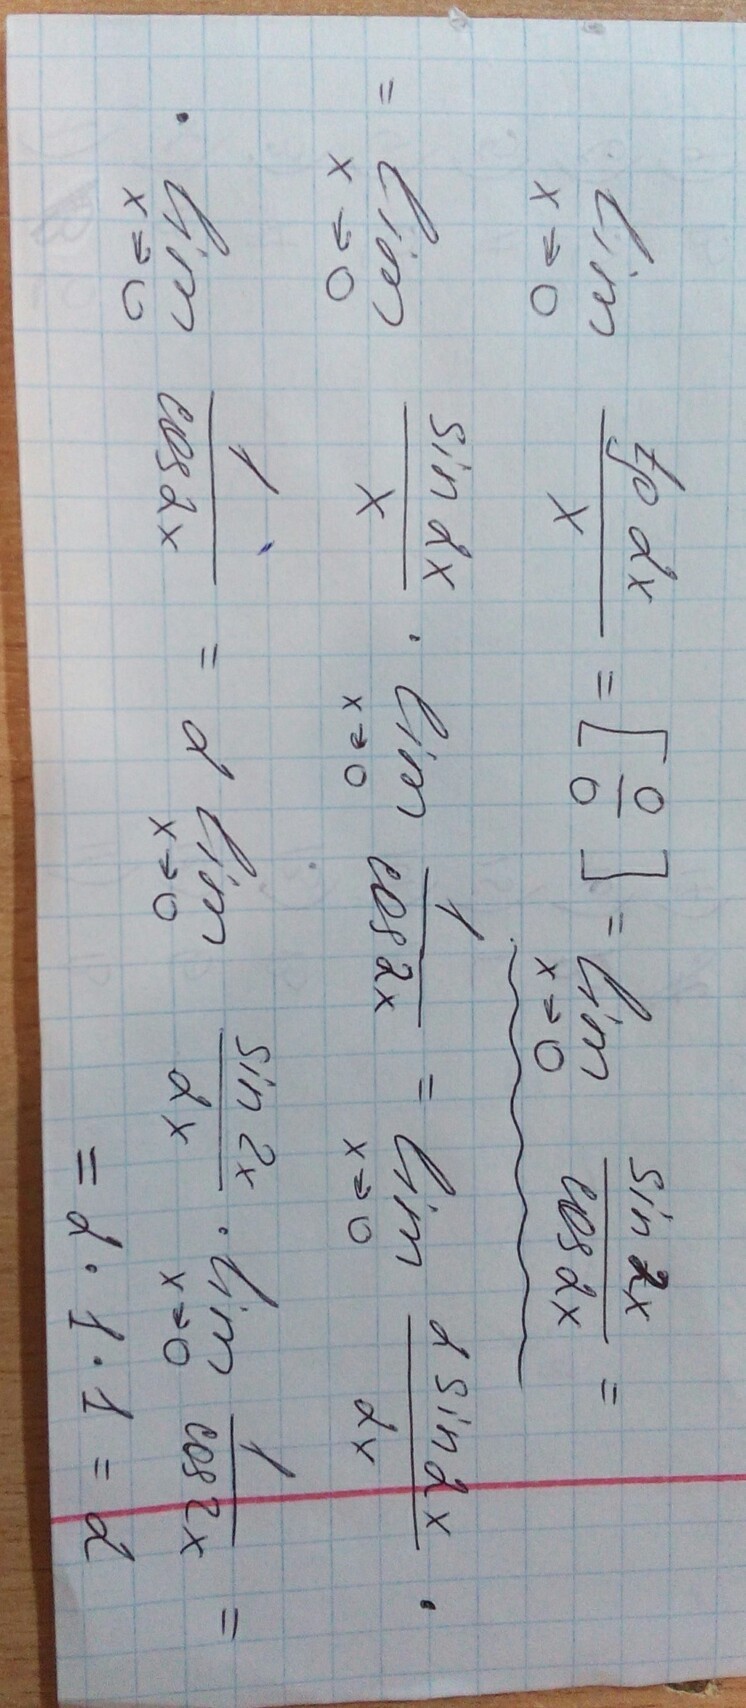 lim_{x→0} \frac{tg 2x}{x} = [\frac{0}{0}] = lim_{x→0} \frac{sin 2x}{cos 2x} =
= lim_{x→0} \frac{sin 2x}{x} · lim_{x→0} \frac{1}{cos 2x} = lim_{x→0} \frac{2 sin 2x}{2x} ·
· lim_{x→0} \frac{1}{cos 2x} = 2 lim_{x→0} \frac{sin 2x}{2x} · lim_{x→0} \frac{1}{cos 2x} =
= 2 · 1 · 1 = 2